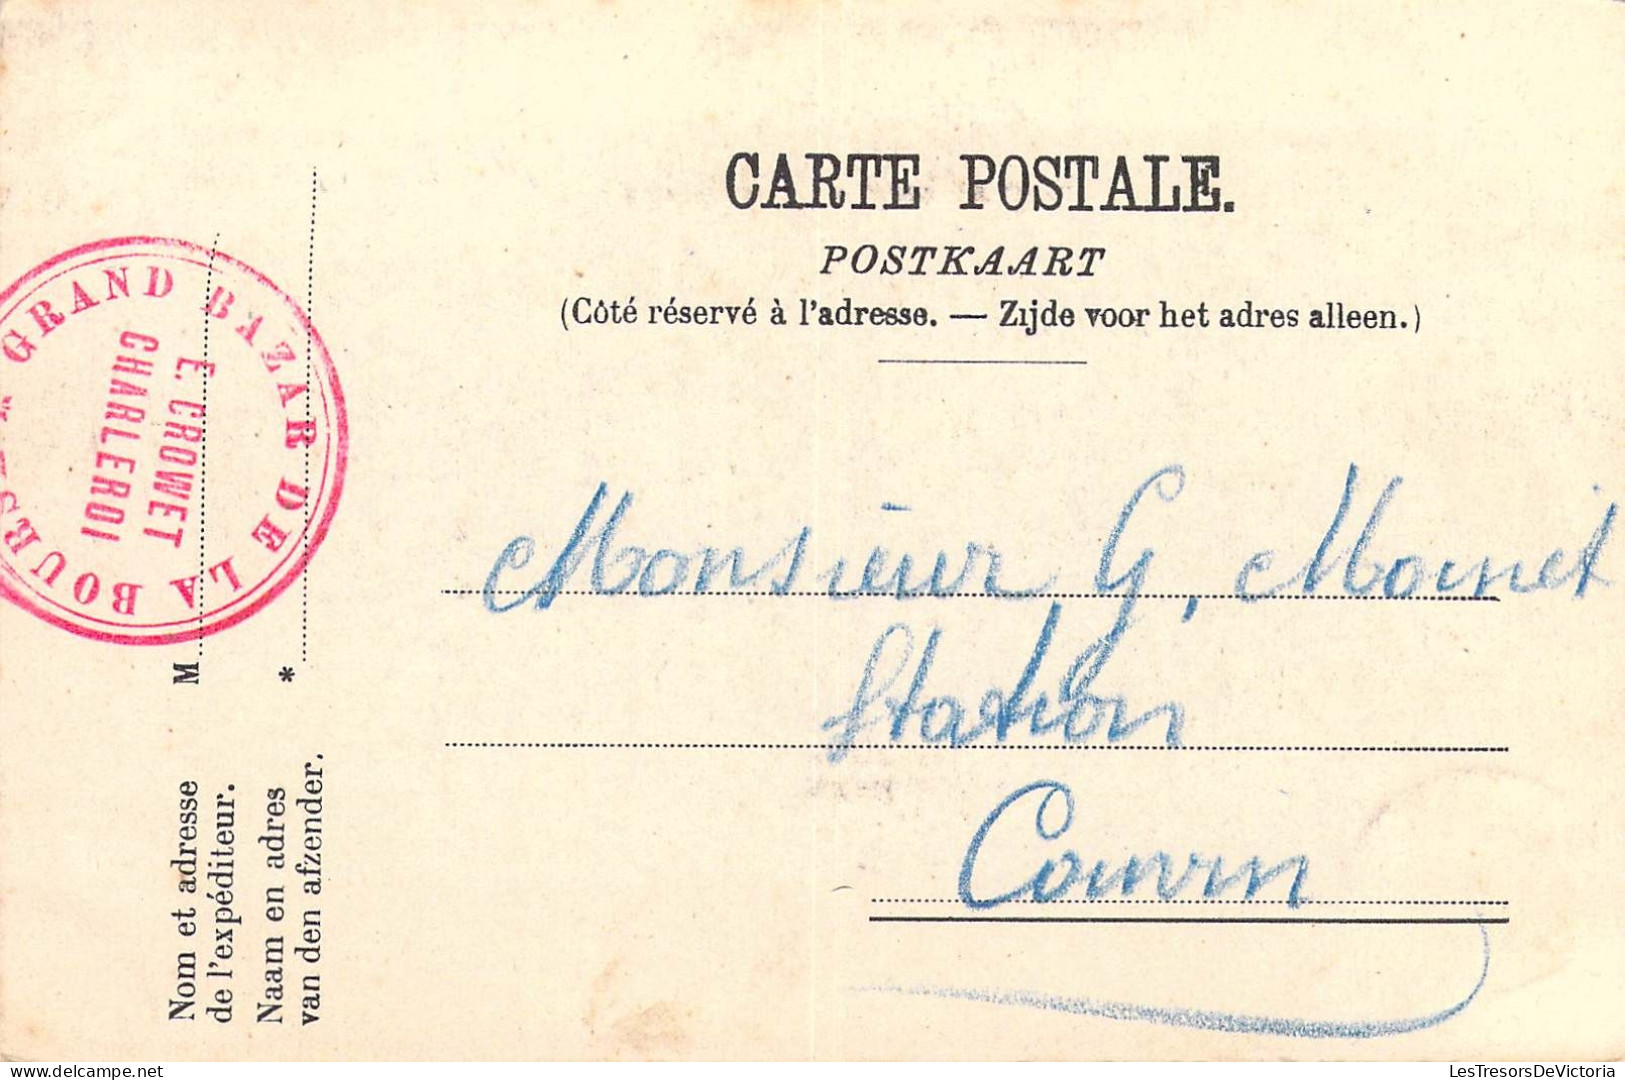 CARTE POSTALE.
POSTKAART
(Côté réservé à l'adresse. — Zijde voor het adres alleen.)
GRAND BAZAR DE LA BOURSE
E. CROWET
CHARLEROI
M
*
Nom et adresse
de l'expéditeur.
Naam en adres
van den afzender.
Monsieur G, Moinet
Station
Couvin
delcampe.net
LesTresorsDeVictoria